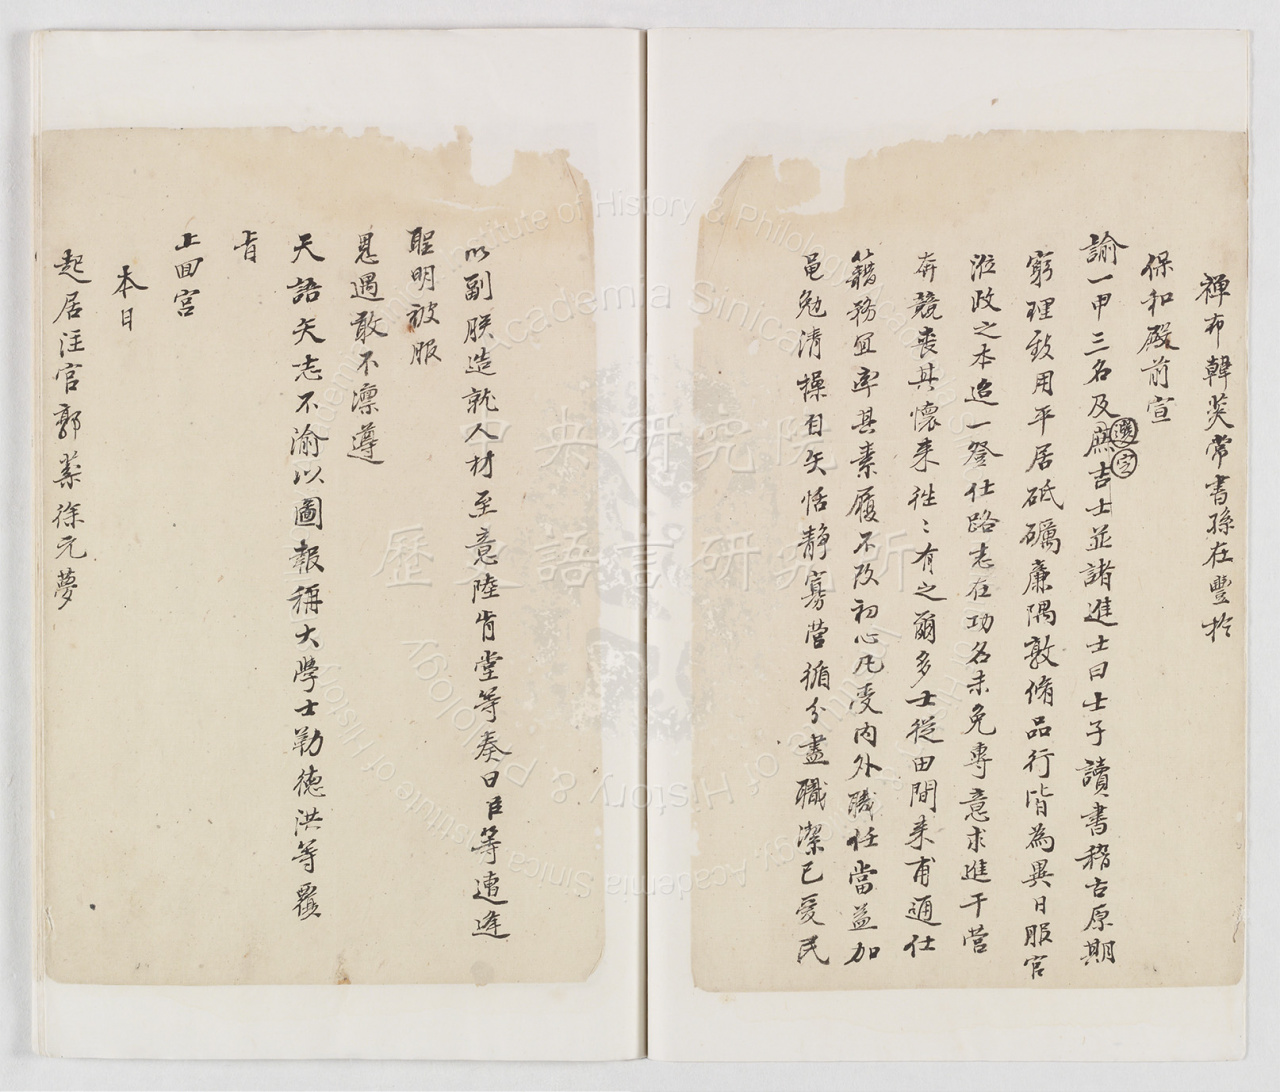 禪布韓菼常書孫在豐於
保和殿前宣
諭一甲三名及選字庶吉士並諸進士曰士子讀書稽古原期
窮理致用平居砥礪廉隅敦脩品行皆為異日服官
涖政之本迨一登仕路志在功名未免專意求進干營
奔競喪其懷來徃〻有之爾多士從田間来甫通仕
籍務宜率其素履不改初心凡受内外職任當益加
黽勉清操自矢恬静寡营循分盡職潔已爱民
以副朕造就人材至意陸肯堂等奏曰臣等遭逢
聖明被服
恩遇敢不凛遵
天語矢志不渝以圖報稱大學士勒德洪等覆
旨
上回宫
本日
起居注官郭棻徐元夢
中央研究院
歷史語言研究所
Institute of History & Philology
Academia Sinica